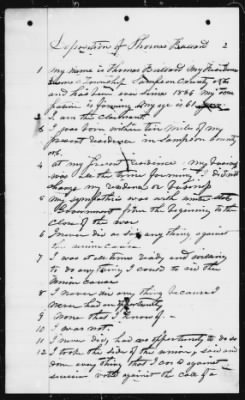 Deposition of Thomas Bullard 2
1 My name is Thomas Bullard My
Township Sampson County
and has been ever since 1866 my
is farming My age is 61
2 I am the Claimant
3 I was born within ten miles of my
present residence in Sampson County
4 at my present residence my
was all the time farming I did not
change my residence or
5 my sympathies was with
Government from the beginning to the
close of the war
6 I never did or say any thing against
the union cause
7 I was at all time ready and willing
to do any thing I could to aid the
Union Cause
8 I never did any thing because I
never had an opportunity
9 None that I know of
10 I was not
11 I never did, had no opportunity to do so
12 I took the side of the union, said and
done every thing that I could against
secession voted against the call of a